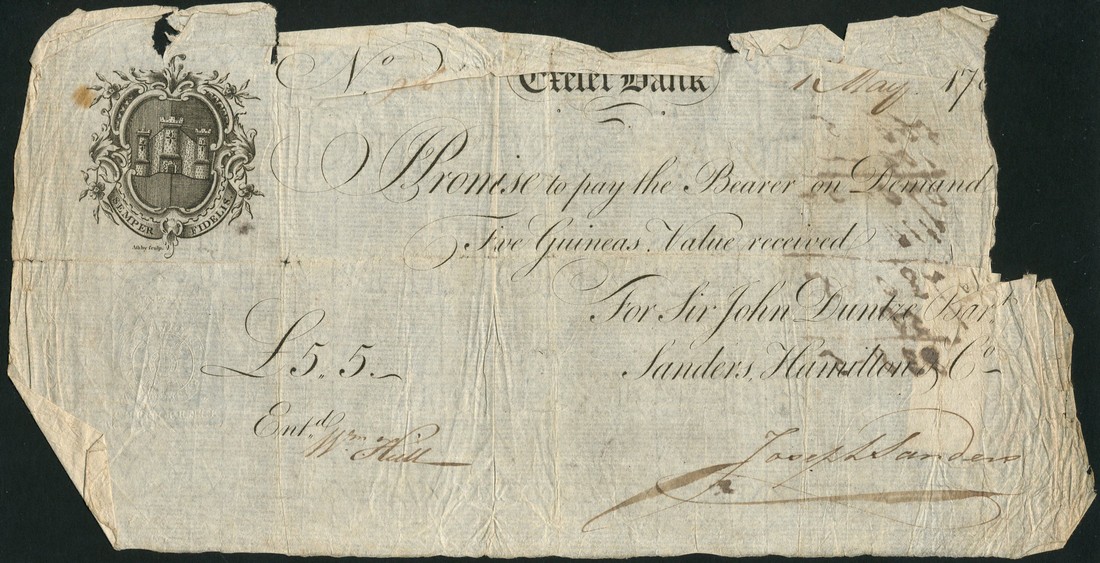 No Exeter Bank 1 May 17
I Promise to pay the Bearer on Demand
Five Guineas Value received
For Sir John Duntze Bart
Sanders, Hamilton & Co
£5,,5,,
Entd. Wm Hill
Joseph Sanders
SEMPER FIDELIS
Ashby Sculp.